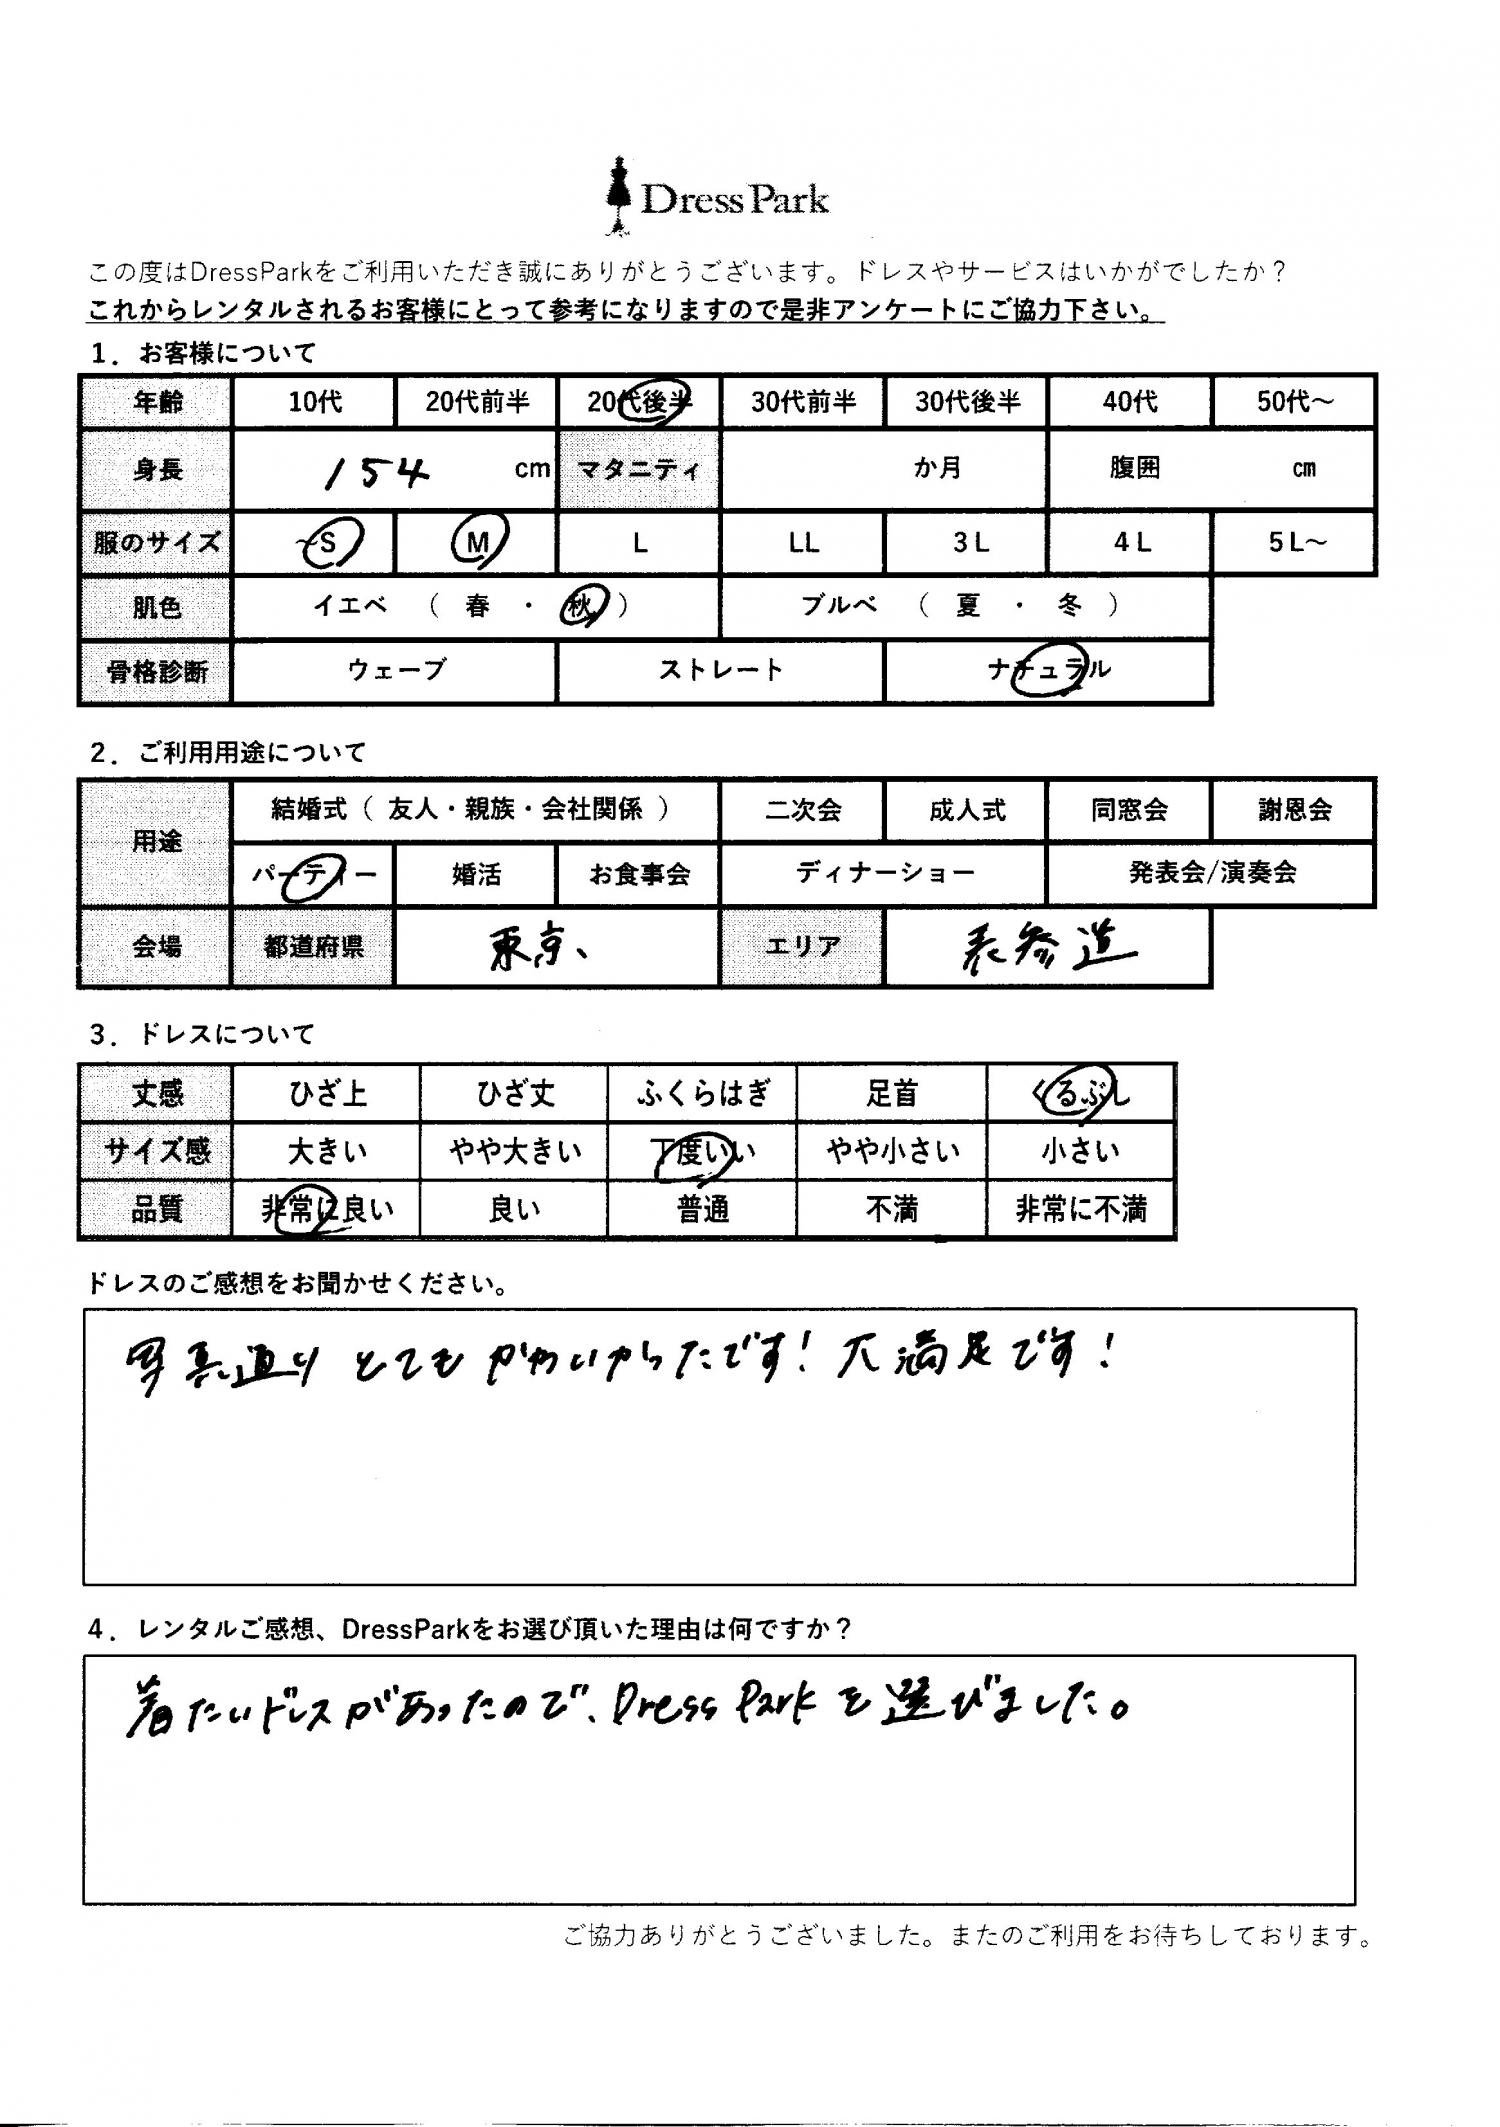 DressPark
この度はDressParkをご利用いただき誠にありがとうございます。ドレスやサービスはいかがでしたか？
これからレンタルされるお客様にとって参考になりますので是非アンケートにご協力下さい。
1．お客様について
年齢 10代 20代前半 20代後半 30代前半 30代後半 40代 50代～
身長 154 cm マタニティ か月 腹囲 cm
服のサイズ ~S M L LL 3L 4L 5L～
肌色 イエベ （ 春 ・ 秋 ） ブルベ （ 夏 ・ 冬 ）
骨格診断 ウェーブ ストレート ナチュラル
2．ご利用用途について
用途 結婚式（ 友人・親族・会社関係 ） 二次会 成人式 同窓会 謝恩会
パーティー 婚活 お食事会 ディナーショー 発表会/演奏会
会場 都道府県 東京、 エリア 表参道
3．ドレスについて
丈感 ひざ上 ひざ丈 ふくらはぎ 足首 くるぶし
サイズ感 大きい やや大きい 丁度いい やや小さい 小さい
品質 非常に良い 良い 普通 不満 非常に不満
ドレスのご感想をお聞かせください。
写真通りとてもかわいかったです！大満足です！
4．レンタルご感想、DressParkをお選び頂いた理由は何ですか？
着たいドレスがあったので、Dress Parkを選びました。
ご協力ありがとうございました。またのご利用をお待ちしております。